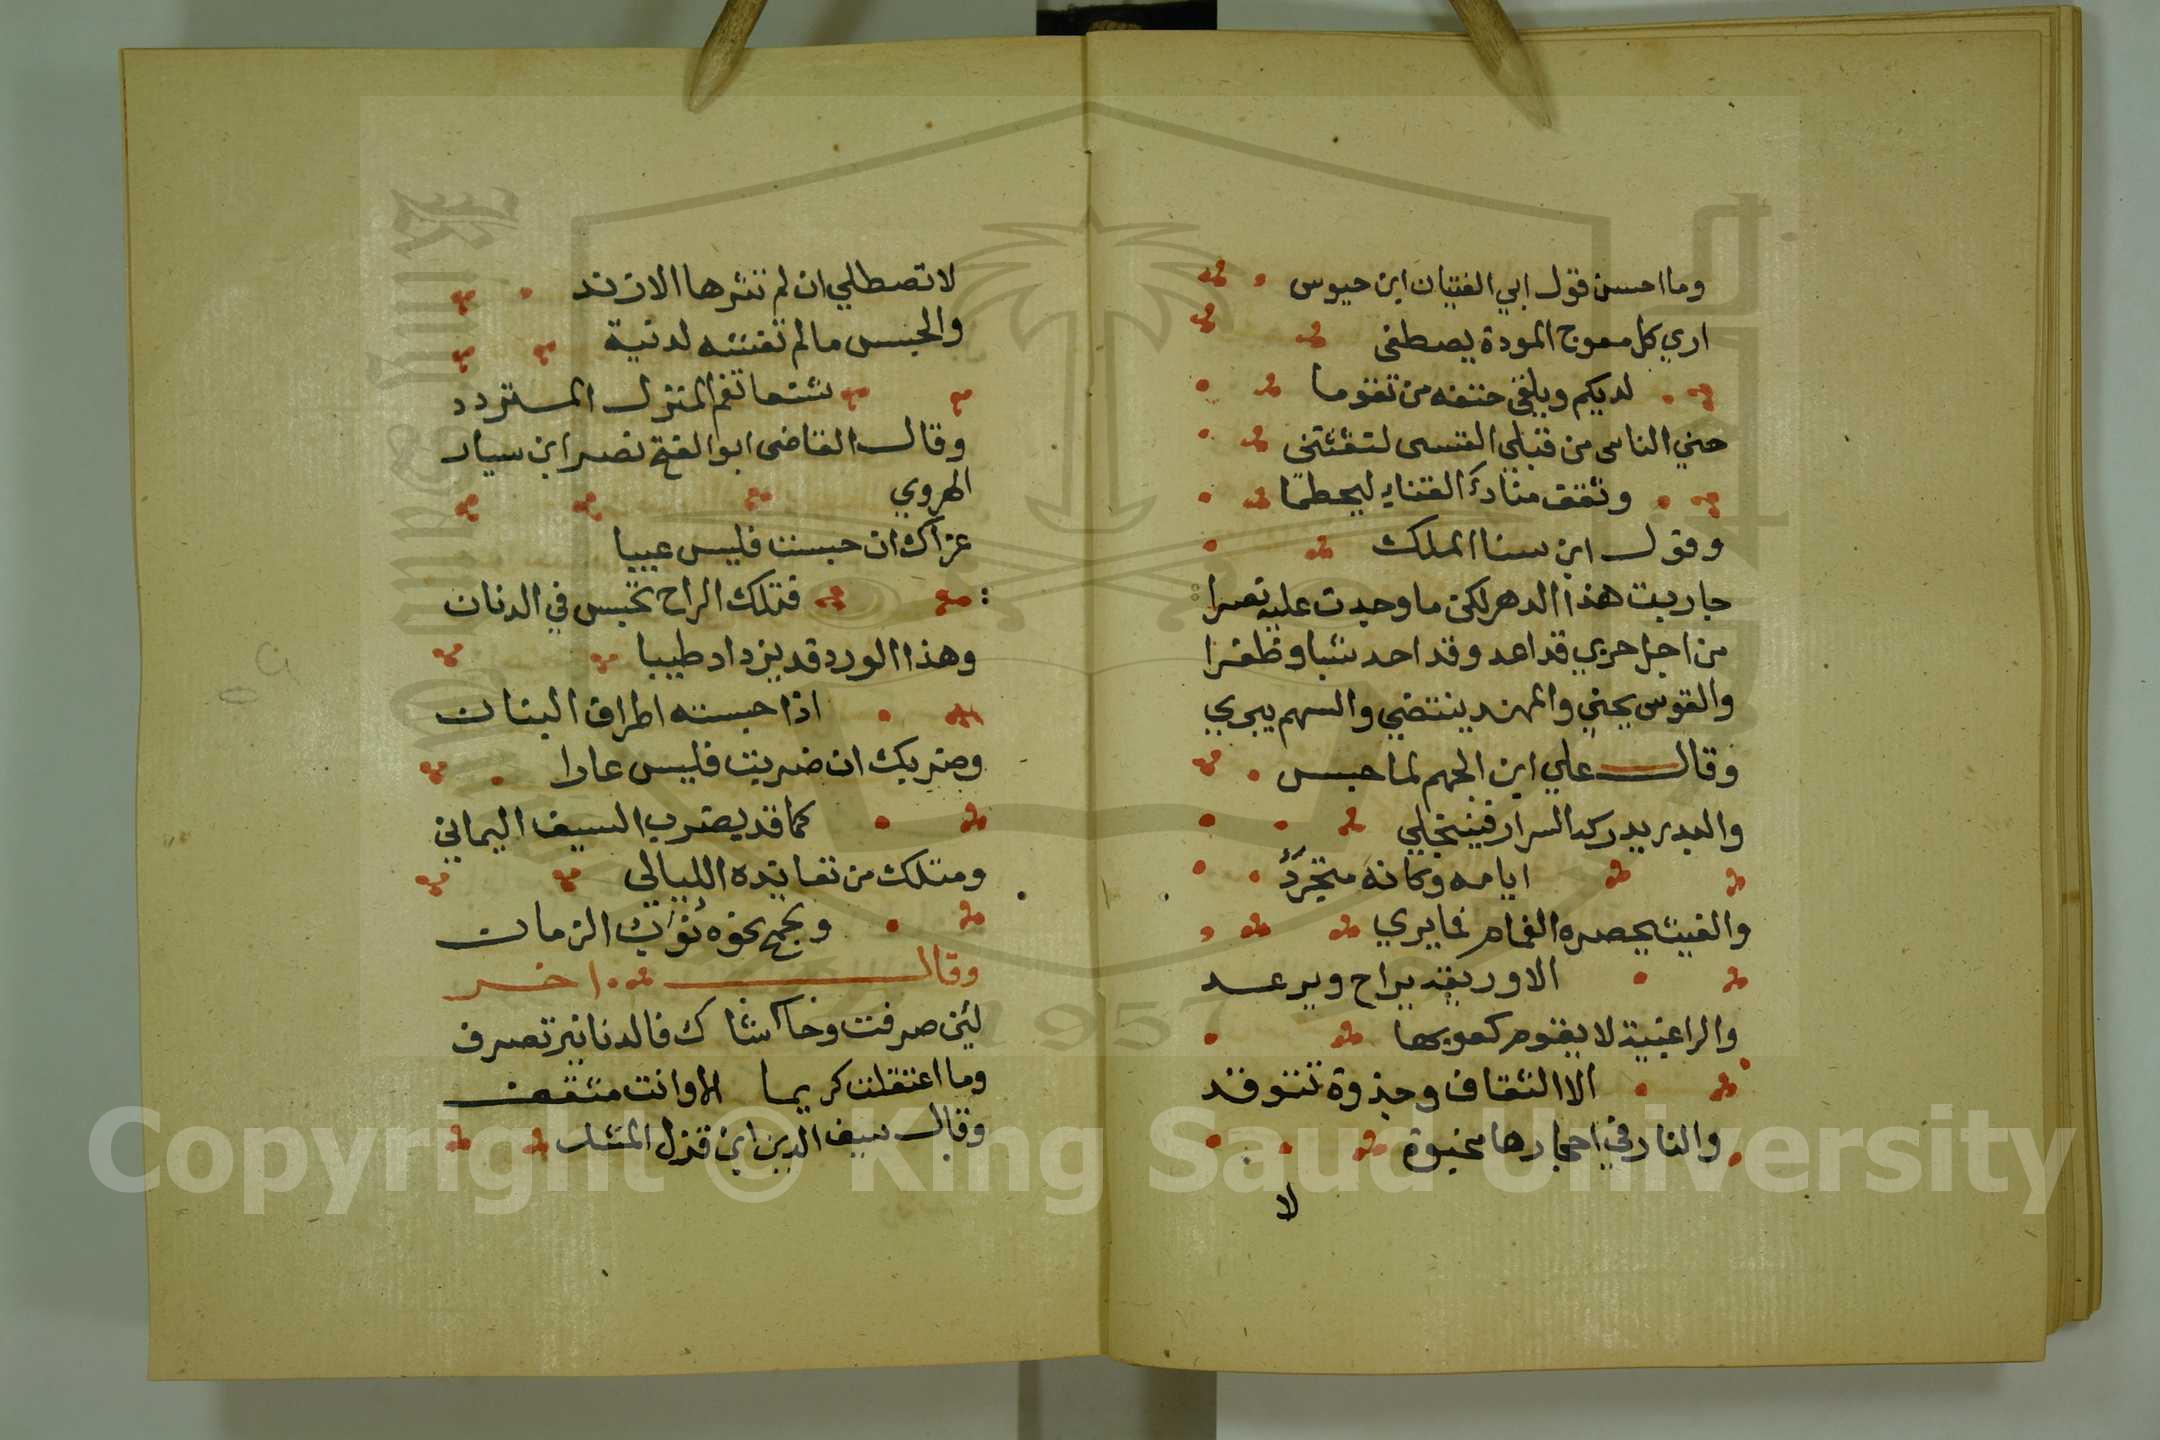 وما احسن قول ابي الفتيان ابن حيوس
اري كل معوج المودة يصطفى
لديكم ويلقى حتفه من تقوما
حني الناس من قبلي القسى لتقتنى
وثقف منادُ القناء ليحطما
وقول ابن سنا الملك
حاربت هذا الدهر لكن ما وجدت عليه نصرا
من اجل حربي قد اعد وقد احد شبا وظفرا
والقوس يحني والمهند ينتضي والسهم يبري
وقال علي ابن الجهم لما حبس
والبدر يدركه السرار فينجلي
ايامه وكانه متجردُ
والغيث يحصره الغمام فما يري
الا وريقه يراح ويرعد
والزاعبية لا يقوم كعوبها
الا الثقاف وجذوة تتوقد
والنار في احجارها مخبوة
لا
لا تصطلي ان لم تثرها الازند
والحبس ما لم تغشه لدنية
شنعا نعم المنزل المستردد
وقال القاضى ابو الفتح نصر ابن سيار
الهروي
عزاك ان حبست فليس عيبا
فتلك الراح تحبس في الدنان
وهذا الورد قد يزداد طيبا
اذا حبسته اطراف البنان
وضربك ان ضربت فليس عارا
كما قد يضرب السيف اليماني
ومثلك من تعانده الليالي
ويجمح نحوه نُوَبُ الزمان
وقال اخر
لئن صرفت وحاشاك فالدنانير تصرف
وما اعتقلت كريما الا وانت مثقف
وقال سيف الدين ابن قزل المشد
Copyright © King Saud University
King Saud University
1957